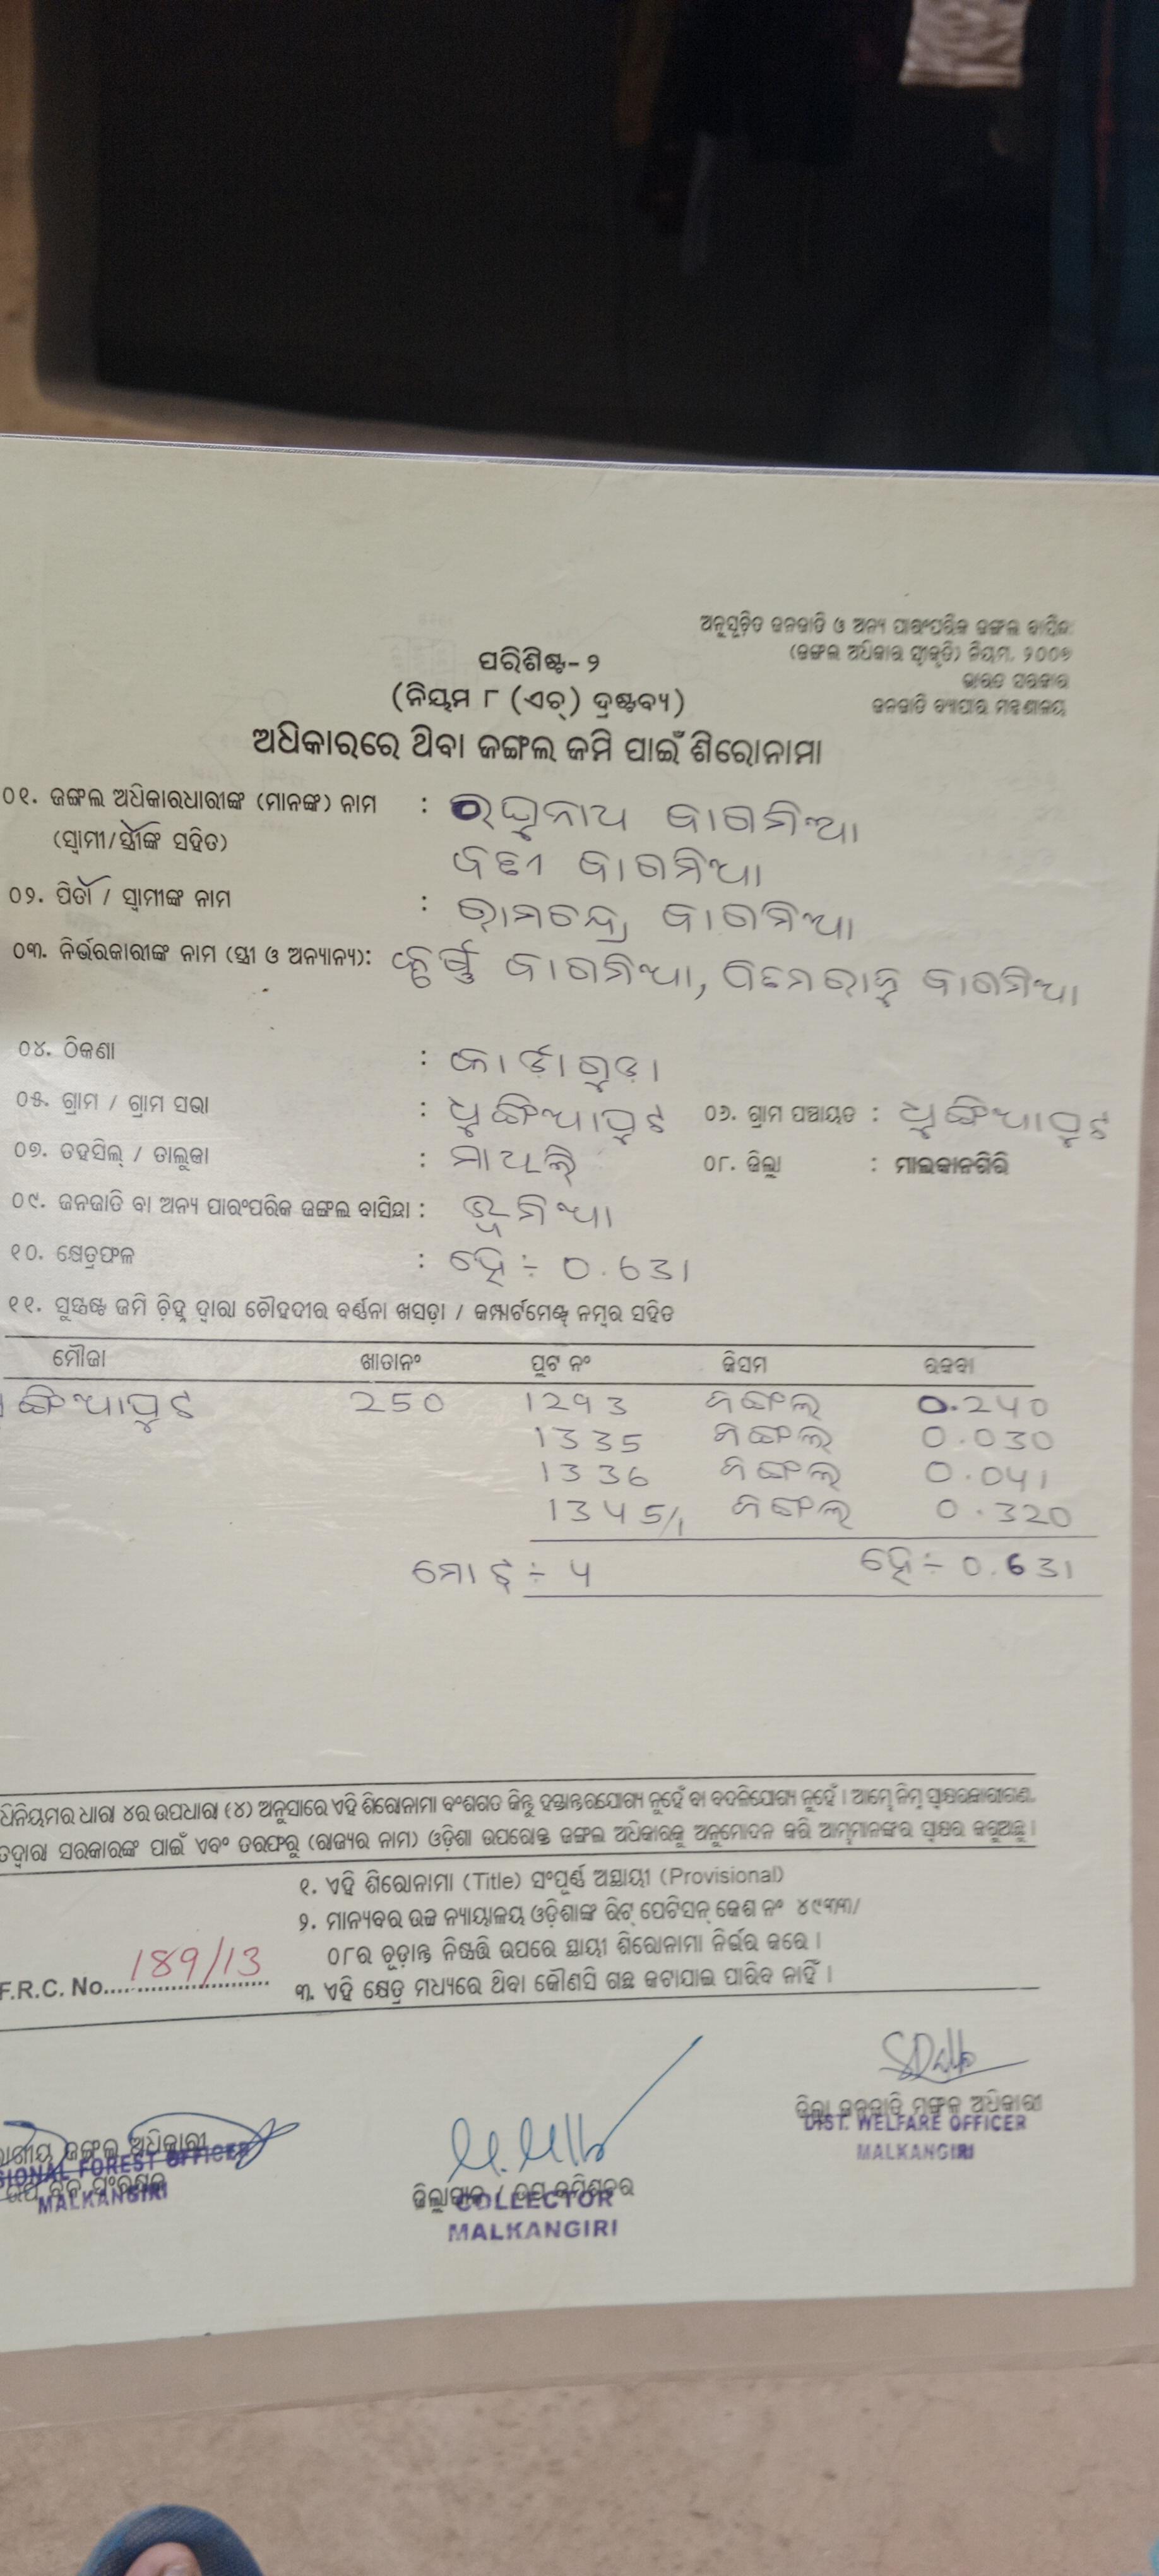 ଅନୁସୂଚିତ ଜନଜାତି ଓ ଅନ୍ୟ ପାରଂପରିକ ଜଙ୍ଗଲ ବାସିନ୍ଦା
(ଜଙ୍ଗଲ ଅଧିକାର ସ୍ୱୀକୃତି) ନିୟମ, ୨୦୦୭
ଭାରତ ସରକାର
ଜନଜାତି ବ୍ୟାପାର ମନ୍ତ୍ରଣାଳୟ
ପରିଶିଷ୍ଟ-୨
(ନିୟମ ୮ (ଏଚ୍) ଦ୍ରଷ୍ଟବ୍ୟ)
ଅଧିକାରରେ ଥିବା ଜଙ୍ଗଲ ଜମି ପାଇଁ ଶିରୋନାମା
୦୧. ଜଙ୍ଗଲ ଅଧିକାରଧାରୀଙ୍କ (ମାନଙ୍କ) ନାମ : ରଘୁନାଥ ବାଗମିଆ
(ସ୍ୱାମୀ/ସ୍ତ୍ରୀଙ୍କ ସହିତ) ବାଗମିଆ
୦୨. ପିତା / ସ୍ୱାମୀଙ୍କ ନାମ : ରାମଚନ୍ଦ୍ର ବାଗମିଆ
୦୩. ନିର୍ଭରକାରୀଙ୍କ ନାମ (ସ୍ତ୍ରୀ ଓ ଅନ୍ୟାନ୍ୟ): ବାଗମିଆ, ବାଗମିଆ
୦୪. ଠିକଣା :
୦୫. ଗ୍ରାମ / ଗ୍ରାମ ସଭା : ଧୁଙ୍ଗିଆପୁଟ ୦୬. ଗ୍ରାମ ପଞ୍ଚାୟତ : ଧୁଙ୍ଗିଆପୁଟ
୦୭. ତହସିଲ୍ / ତାଲୁକା : ମାଥିଲି ୦୮. ଜିଲ୍ଲା : ମାଲକାନଗିରି
୦୯. ଜନଜାତି ବା ଅନ୍ୟ ପାରଂପରିକ ଜଙ୍ଗଲ ବାସିନ୍ଦା : ଭୂମିଆ
୧୦. କ୍ଷେତ୍ରଫଳ : ହେ ÷ 0.631
୧୧. ସୁସ୍ପଷ୍ଟ ଜମି ଚିହ୍ନ ଦ୍ୱାରା ଚୌହଦୀର ବର୍ଣ୍ଣନା ଖସଡ଼ା / କମ୍ପାର୍ଟମେଣ୍ଟ ନମ୍ବର ସହିତ
ମୌଜା ଖାତାନଂ ପ୍ଲଟ ନଂ କିସମ ରକବା
ଙ୍ଗିଆପୁଟ 250 1293 ଜଙ୍ଗଲ 0.240
1335 ଜଙ୍ଗଲ 0.030
1336 ଜଙ୍ଗଲ 0.041
1345/1 ଜଙ୍ଗଲ 0.320
ମୋଟ ÷ 4 ହେ ÷ 0.631
ଧିନିୟମର ଧାରା ୪ର ଉପଧାରା (୪) ଅନୁସାରେ ଏହି ଶିରୋନାମା ବଂଶଗତ କିନ୍ତୁ ହସ୍ତାନ୍ତରଯୋଗ୍ୟ ନୁହେଁ ବା ବଦଳିଯୋଗ୍ୟ ନୁହେଁ । ଆମ୍ଭେ ନିମ୍ନ ସ୍ୱାକ୍ଷରକାରୀଗଣ,
ତଦ୍ୱାରା ସରକାରଙ୍କ ପାଇଁ ଏବଂ ତରଫରୁ (ରାଜ୍ୟର ନାମ) ଓଡ଼ିଶା ଉପରୋକ୍ତ ଜଙ୍ଗଲ ଅଧିକାରକୁ ଅନୁମୋଦନ କରି ଆମ୍ଭମାନଙ୍କର ସ୍ୱାକ୍ଷର କରୁଅଛୁ ।
୧. ଏହି ଶିରୋନାମା (Title) ସଂପୂର୍ଣ୍ଣ ଅସ୍ଥାୟୀ (Provisional)
୨. ମାନ୍ୟବର ଉଚ୍ଚ ନ୍ୟାୟାଳୟ ଓଡ଼ିଶାଙ୍କ ରିଟ୍ ପେଟିସନ୍ କେଶ ନଂ ୪୯୩୩/
୦୮ର ଚୂଡ଼ାନ୍ତ ନିଷ୍ପତ୍ତି ଉପରେ ସ୍ଥାୟୀ ଶିରୋନାମା ନିର୍ଭର କରେ ।
F.R.C. No. 189/13
୩. ଏହି କ୍ଷେତ୍ର ମଧ୍ୟରେ ଥିବା କୌଣସି ଗଛ କଟାଯାଇ ପାରିବ ନାହିଁ ।
ଜିଲ୍ଲା ଜନଜାତି ମଙ୍ଗଳ ଅଧିକାରୀ
DIST. WELFARE OFFICER
MALKANGIRI
ଜଙ୍ଗଲ ଅଧିକାରୀ
SIONAL FOREST OFFICER
MALKANGIRI
ଜିଲ୍ଲାପାଳ / ଉପ କମିଶନର
COLLECTOR
MALKANGIRI